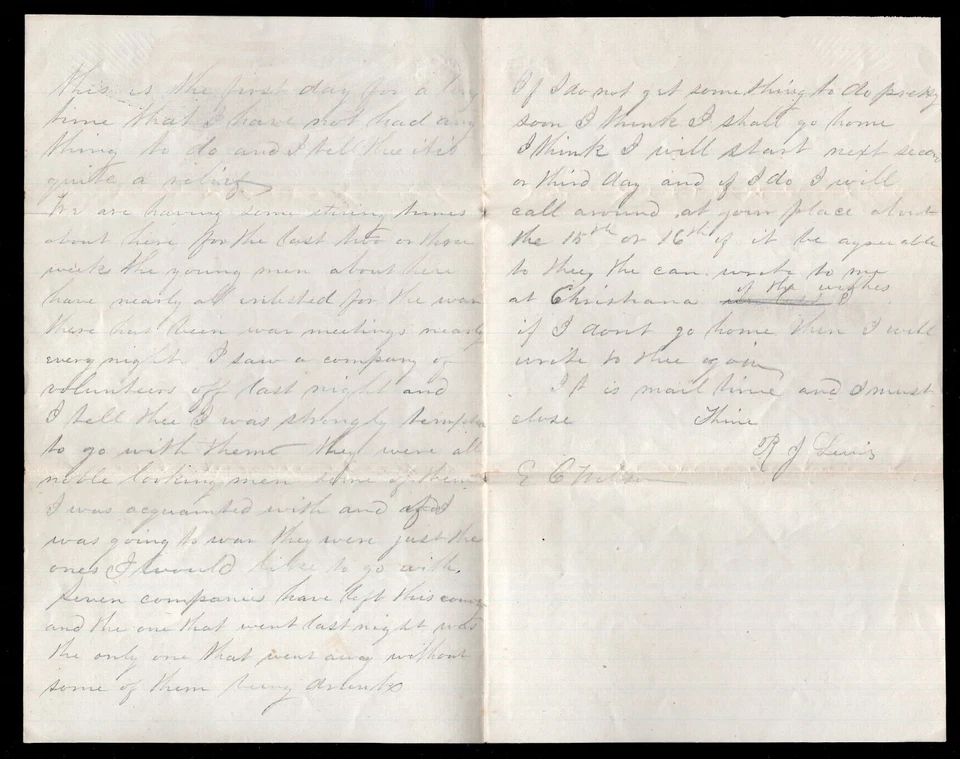 this is the first day for a long
time that I have not had any
thing to do and I tell thee it is
quite a relief
We are having some stiring times
about here for the last two or three
weeks the young men about here
have nearly all enlisted for the war
there has been war meetings nearly
every night I saw a company of
volunteers off last night and
I tell thee I was strongly tempted
to go with them they were all
noble looking men some of them
I was acquainted with and if I
was going to war they were just the
ones I would like to go with.
Seven companies have left this county
and the one that went last night was
the only one that went away without
some of them being drunk
If I do not get something to do pretty
soon I think I shall go home
I think I will start next second
or third day and if I do I will
call around at your place about
the 15th or 16th if it be agreeable
to thee, the can write to me
at Christiana if the wishes
if I dont go home then I will
write to thee again
It is mail time and I must
close Thine
R J Lewis
E C Wilson